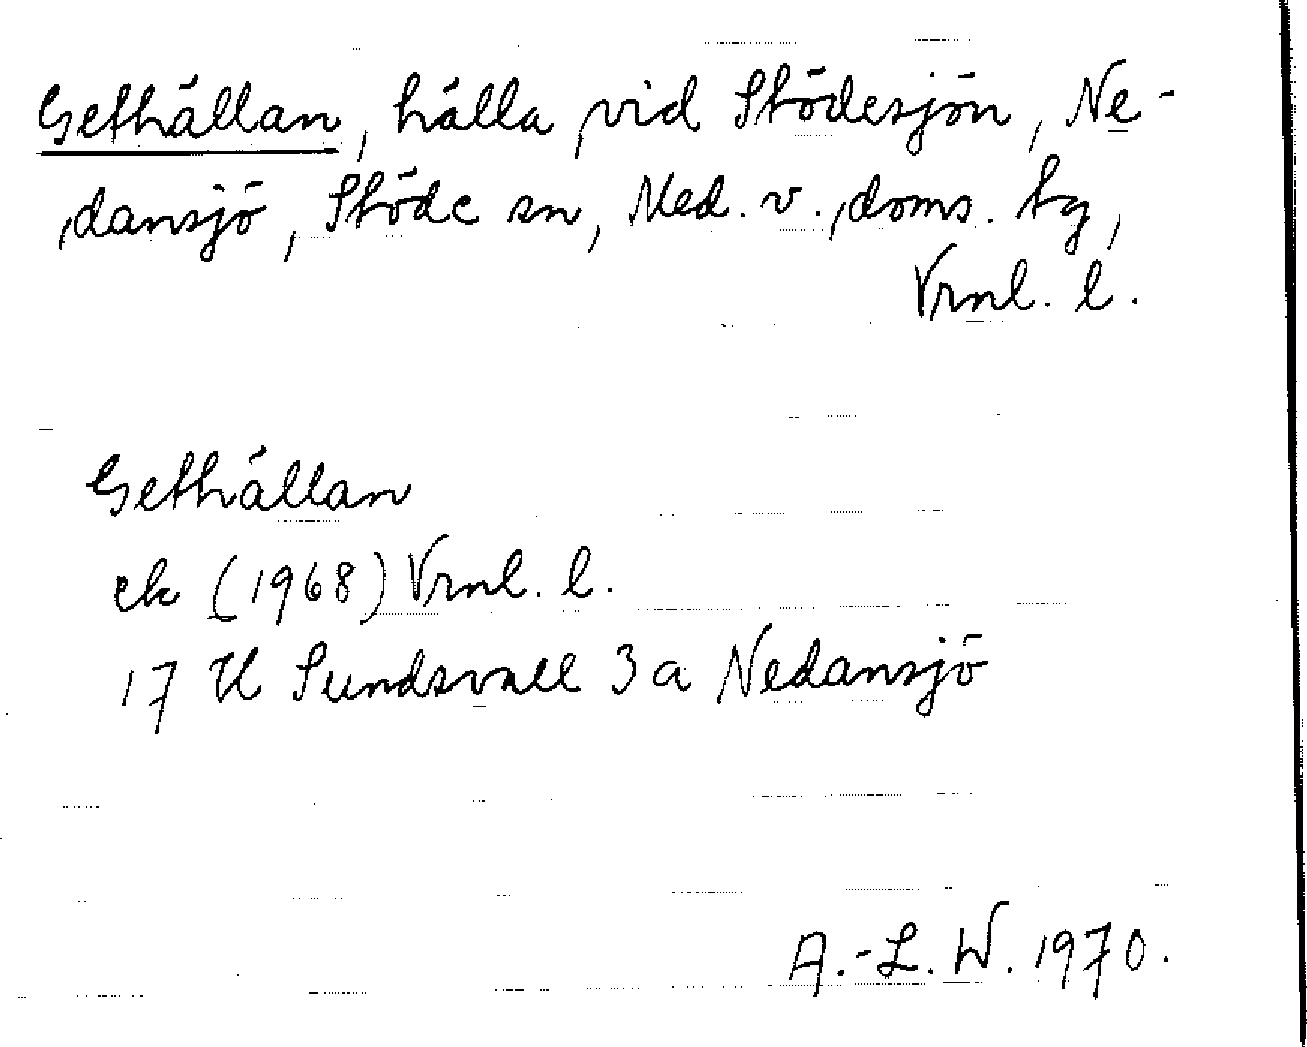 Gethällan, hälla vid Stödesjön, Ne-
dansjö, Stöde sn, Med. v. doms. tg,
Vrnl. l.
Gethällan
ek (1968) Vrnl. l.
17 H Sundsvall 3 a Nedansjö
A.-L. W. 1970.